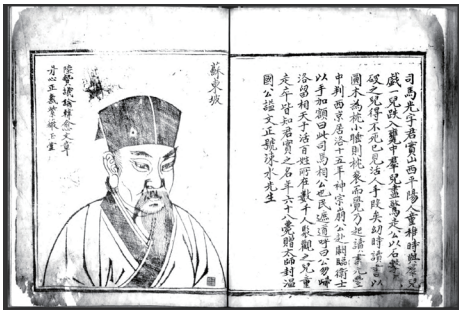 司馬光字君實山西平陽人童稚時與群兒
戲一兒跌入甕中群兒盡驚走公以石擊
破之兒得不死已見活人手段矣幼時讀書以
圓木為枕小睡則枕轉而覺乃起讀書元豐
中判西京居洛十五年神宗崩公赴闕臨衛士
以手加額曰此司馬相公也民遮道呼曰公勿歸
洛留相天子活百姓所在數千人聚觀之兒童
走卒皆知君實之名年六十八薨贈太師封溫
國公謚文正號涑水先生
蘇東坡
陸贄議論韓愈文章